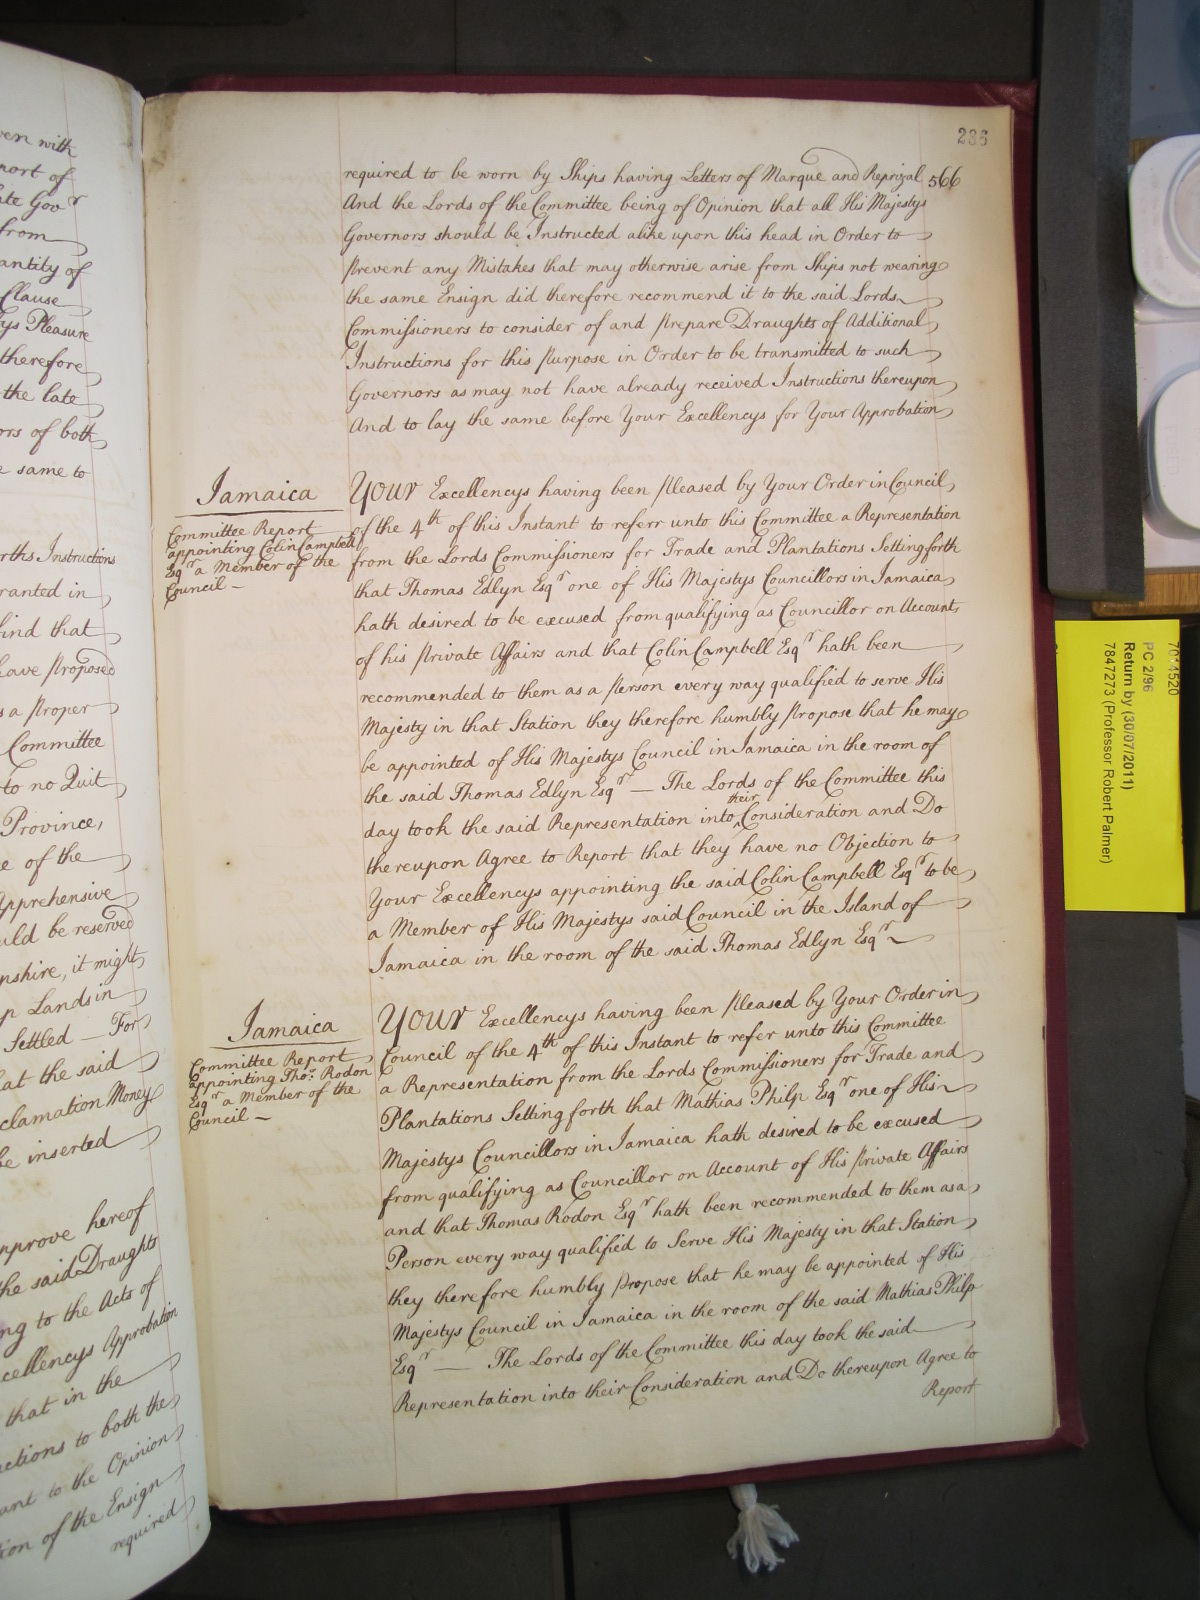 ven with
port of
ate Gov.r
from
antity of
Clause
tys Pleasure
therefore
the late
ors of both
same to
rths Instructions
ranted in
find that
eave proposed
s a proper
Committee
to no Quit
Province,
e of the
Apprehensive
uld be reserved
pshire, it might
p Lands in
Settled — For
at the said
clamation Money
be inserted
pprove hereof
the said Draughts
ng to the Acts of
cellencys Approbation
that in the
uctions to both the
ant to the Opinion
ion of the Ensign
required
236
566
required to be worn by Ships having Letters of Marque and Reprizal
And the Lords of the Committee being of Opinion that all His Majestys
Governors should be Instructed alike upon this head in Order to
prevent any Mistakes that may otherwise arise from Ships not wearing
the same Ensign did therefore recommend it to the said Lords
Commissioners to consider of and prepare Draughts of Additional
Instructions for this purpose in Order to be transmitted to such
Governors as may not have already received Instructions thereupon
And to lay the same before Your Excellencys for Your Approbation
Jamaica
Committee Report
appointing Colin Campbell
Esqr a Member of the
Council —
Your Excellencys having been pleased by Your Order in Council
of the 4th of this Instant to referr unto this Committee a Representation
from the Lords Commissioners for Trade and Plantations Setting forth
that Thomas Edlyn Esqr one of His Majestys Councillors in Jamaica
hath desired to be excused from qualifying as Councillor on Account
of his private Affairs and that Colin Campbell Esqr hath been
recommended to them as a person every way qualified to serve His
Majesty in that Station they therefore humbly propose that he may
be appointed of His Majestys Council in Jamaica in the room of
the said Thomas Edlyn Esqr — The Lords of the Committee this
day took the said Representation into their Consideration and Do
thereupon Agree to Report that they have no Objection to
Your Excellencys appointing the said Colin Campbell Esqr to be
a Member of His Majestys said Council in the Island of
Jamaica in the room of the said Thomas Edlyn Esqr
Jamaica
Committee Report
appointing Thos. Rodon
Esqr a Member of the
Council —
Your Excellencys having been pleased by Your Order in
Council of the 4th of this Instant to refer unto this Committee
a Representation from the Lords Commissioners for Trade and
Plantations Setting forth that Mathias Philp Esqr one of His
Majestys Councillors in Jamaica hath desired to be excused
from qualifying as Councillor on Account of His private Affairs
and that Thomas Rodon Esqr hath been recommended to them as a
Person every way qualified to Serve His Majesty in that Station
they therefore humbly propose that he may be appointed of His
Majestys Council in Jamaica in the room of the said Mathias Philp
Esqr — The Lords of the Committee this day took the said
Representation into their Consideration and Do thereupon Agree to
Report
7014520
PC 2/96
Return by (30/07/2011)
7847273 (Professor Robert Palmer)